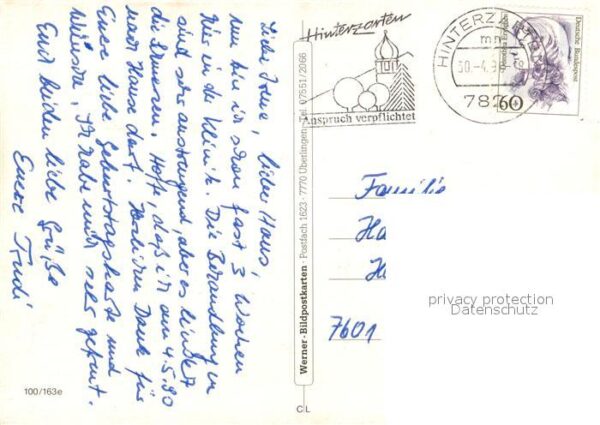 Liebe Irene, lieber Hans,
nun bin ich schon fast 3 Wochen
hier in der Klinik. Die Behandlungen
sind sehr anstrengend, aber es lindert
die Schmerzen. Hoffe, daß ich am 4.5.90
nach Hause darf. Herzlichen Dank für
Eure liebe Geburtstagskarte und
Wünsche, Ich habe mich sehr gefreut.
Euch beiden liebe Grüße
Eure Trudi
100/163e
Werner-Bildpostkarten · Postfach 1623 · 7770 Überlingen · Tel. 07551/2066
CL
Hinterzarten
Anspruch verpflichtet
HINTERZARTEN
mn
30.-4.90
782
Deutsche Bundespost
60
Familie
Ha
H
7601
privacy protection
Datenschutz